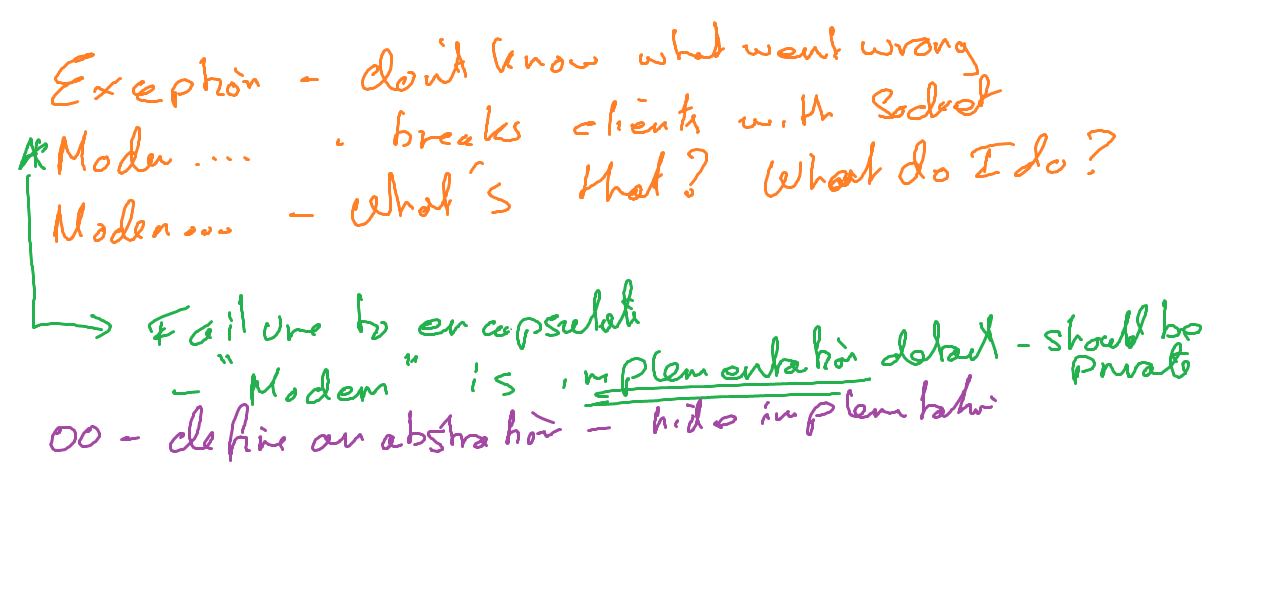 Exception - don't know what went wrong
* Modem .... - breaks clients with Socket
Modem... - What's that? What do I do?
Failure to encapsulate
- "Modem" is implementation detail - should be private
OO - define an abstraction - hide implementation